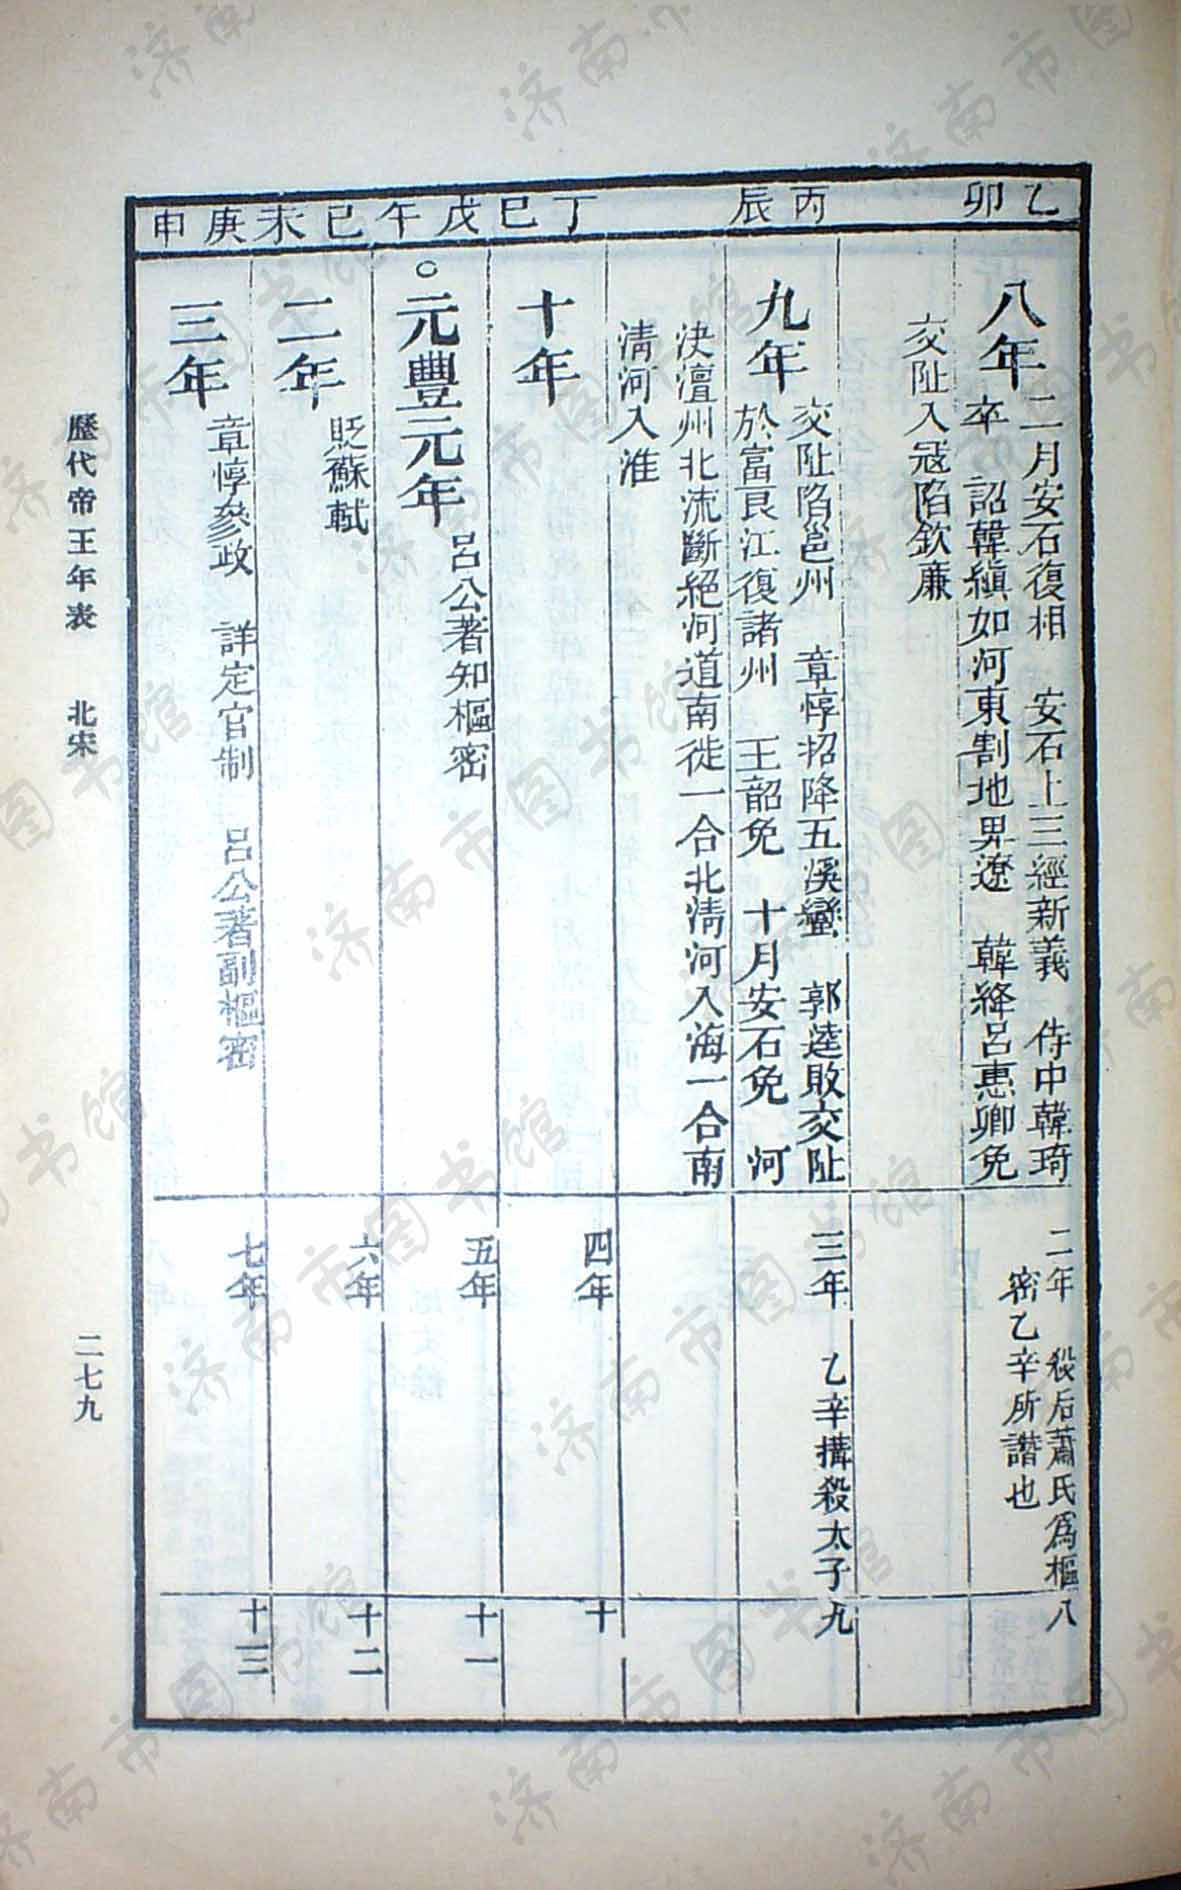 乙卯
八年
二月安石復相　安石上三經新義　侍中韓琦
卒　詔韓縝如河東割地畀遼　韓絳呂惠卿免
交阯入寇陷欽廉
二年　殺后蕭氏爲樞
密乙辛所譖也
八
丙辰
九年
交阯陷邕州　章惇招降五溪蠻　郭逵敗交阯
於富良江復諸州　王韶免　十月安石免　河
決澶州北流斷絕河道南徙一合北淸河入海一合南
淸河入淮
三年　乙辛搆殺太子
九
丁巳
十年
四年
十
戊午
○元豐元年　呂公著知樞密
五年
十一
己未
二年　貶蘇軾
六年
十二
庚申
三年　章惇參政　詳定官制　呂公著副樞密
七年
十三
歷代帝王年表　北宋
二七九
济南市图书馆